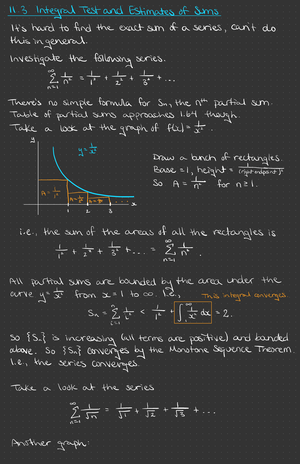 11.3 Integral Test and Estimates of Sums
It's hard to find the exact sum of a series, can't do
this in general.
Investigate the following series.
∞∑n=1 1/n² = 1/1² + 1/2² + 1/3² + ...
There's no simple formula for Sn, the nth partial sum.
Table of partial sums approaches 1.64 though.
Take a look at the graph of f(x) = 1/x².
y = 1/x²
Draw a bunch of rectangles.
Base = 1, height = 1/(right endpoint)²
So A = 1/n² for n ≥ 1.
A = 1/1² A = 1/2² A = 1/3² ...
1 2 3
i.e., the sum of the areas of all the rectangles is
1/1² + 1/2² + 1/3² + ... = ∞∑n=1 1/n².
All partial sums are bounded by the area under the
curve y = 1/x² from x = 1 to ∞. I.e.,
This integral converges.
Sn = n∑i=1 1/i² < 1/1² + ∫₁^∞ 1/x² dx = 2.
So {Sn} is increasing (all terms are positive) and bounded
above. So {Sn} converges by the Monotone Sequence Theorem.
I.e., the series converges.
Take a look at the series
∞∑n=1 1/√n = 1/√1 + 1/√2 + 1/√3 + ...
Another graph: